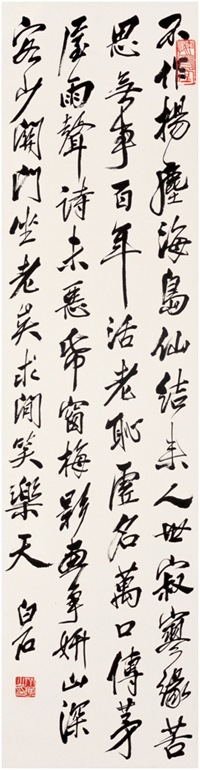 不作揚塵海島仙結來人世寂寥緣苦
思無事百年活老恥虛名萬口傳茅
屋雨聲詩未惡帋窗梅影畫爭妍山深
客少開門坐老矣求閒笑樂天
白石